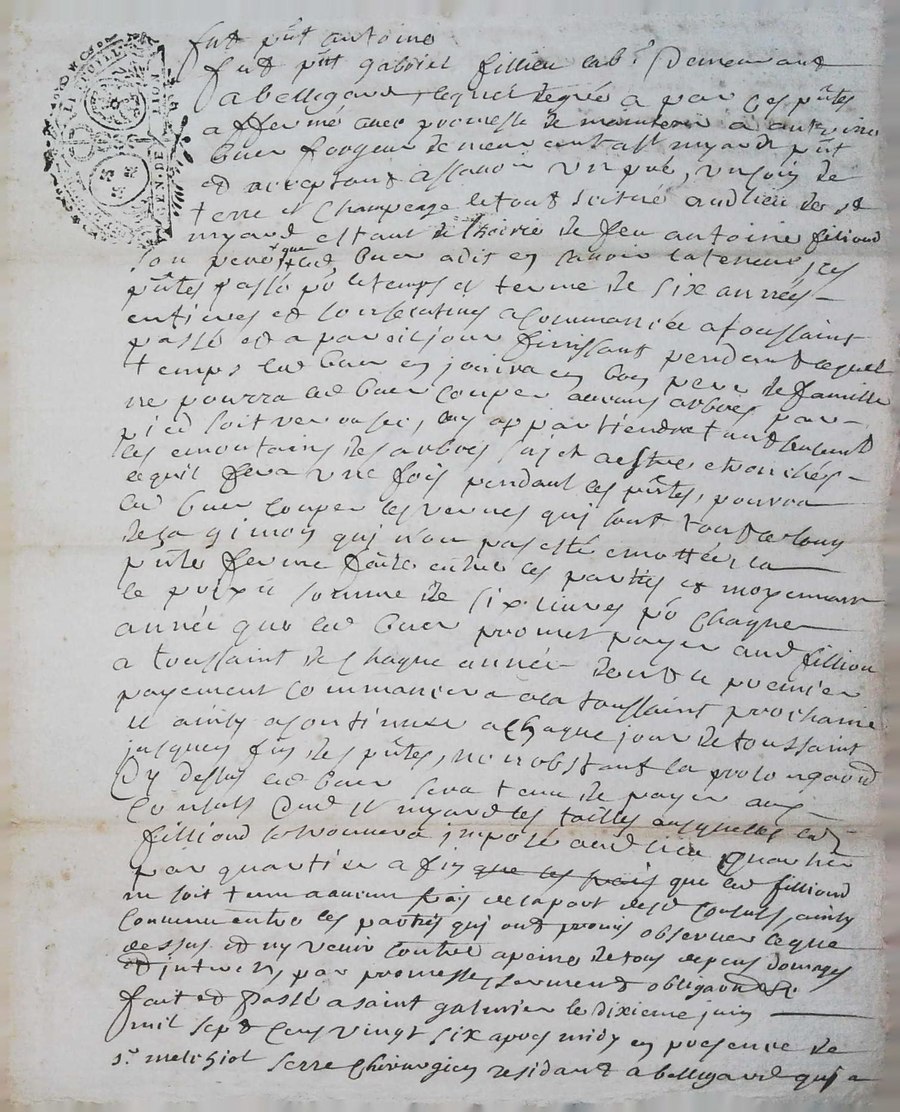 fut pnt antoine
fut pnt gabriel fillieu lab.r demeurant
a bellegard lequel de gré a par ces pntes
affermé avec promesse de maintenir a antoine
buer forgeur demeurant a st myard pnt
et acceptant assavoir un pré, un soin de
terre et Champeage le tout scitué audlieu de st
myard estant de lhoirie de feu antoine filliond
son pere que led buer a dit en savoir la teneur, ces
pntes passé po le temps et terme de six années
entieres et consecutives a commancée a toussaint
passé et a pareil jour finissant pendant lequel
temps led buer en jouira en bon pere de famille
ne pourra led buer couper aucuns arbres par
pied soit ver ou sec, luy appartiendra tant seulement
les emontains des arbres sujet a estre etronchés
ce quil fera une fois pendant les pntes, pourra
led buer couper les vernes qui sont tout le long
de la gimon qui n'on pas esté emottée, la
pnte ferme faite entre les parties et moyennant
le prix et somme de six livres po chaque
année que led buer promet payer aud filliou
a toussaint de chaque année dont le premier
payement commancera a la toussaint prochaine
et ainsy a continuer a chaque jour de toussaint
jusques fin des pntes, nonobstant la prolongaond
Cy dessus led buer sera tenu de payer aux
Consuls dud st myard les tailles ausquelles led
filliond se trouvera imposé audlieu quartier
par quartier afin que les frais que led filliond
ne soit tenu a aucun frais de la part desd Consuls, ainsy
Convenu entre les parties qui ont promis observer ce que
dessus et ny venir contre a peine de tous depens domages
et interets, par promesse, serment obligaon &c
fait et passé a saint galmier le dixieme juin
mil sept cens vingt six apres midy en presence de
sr. melchiol serre Chirurgien residant a bellegard qui a